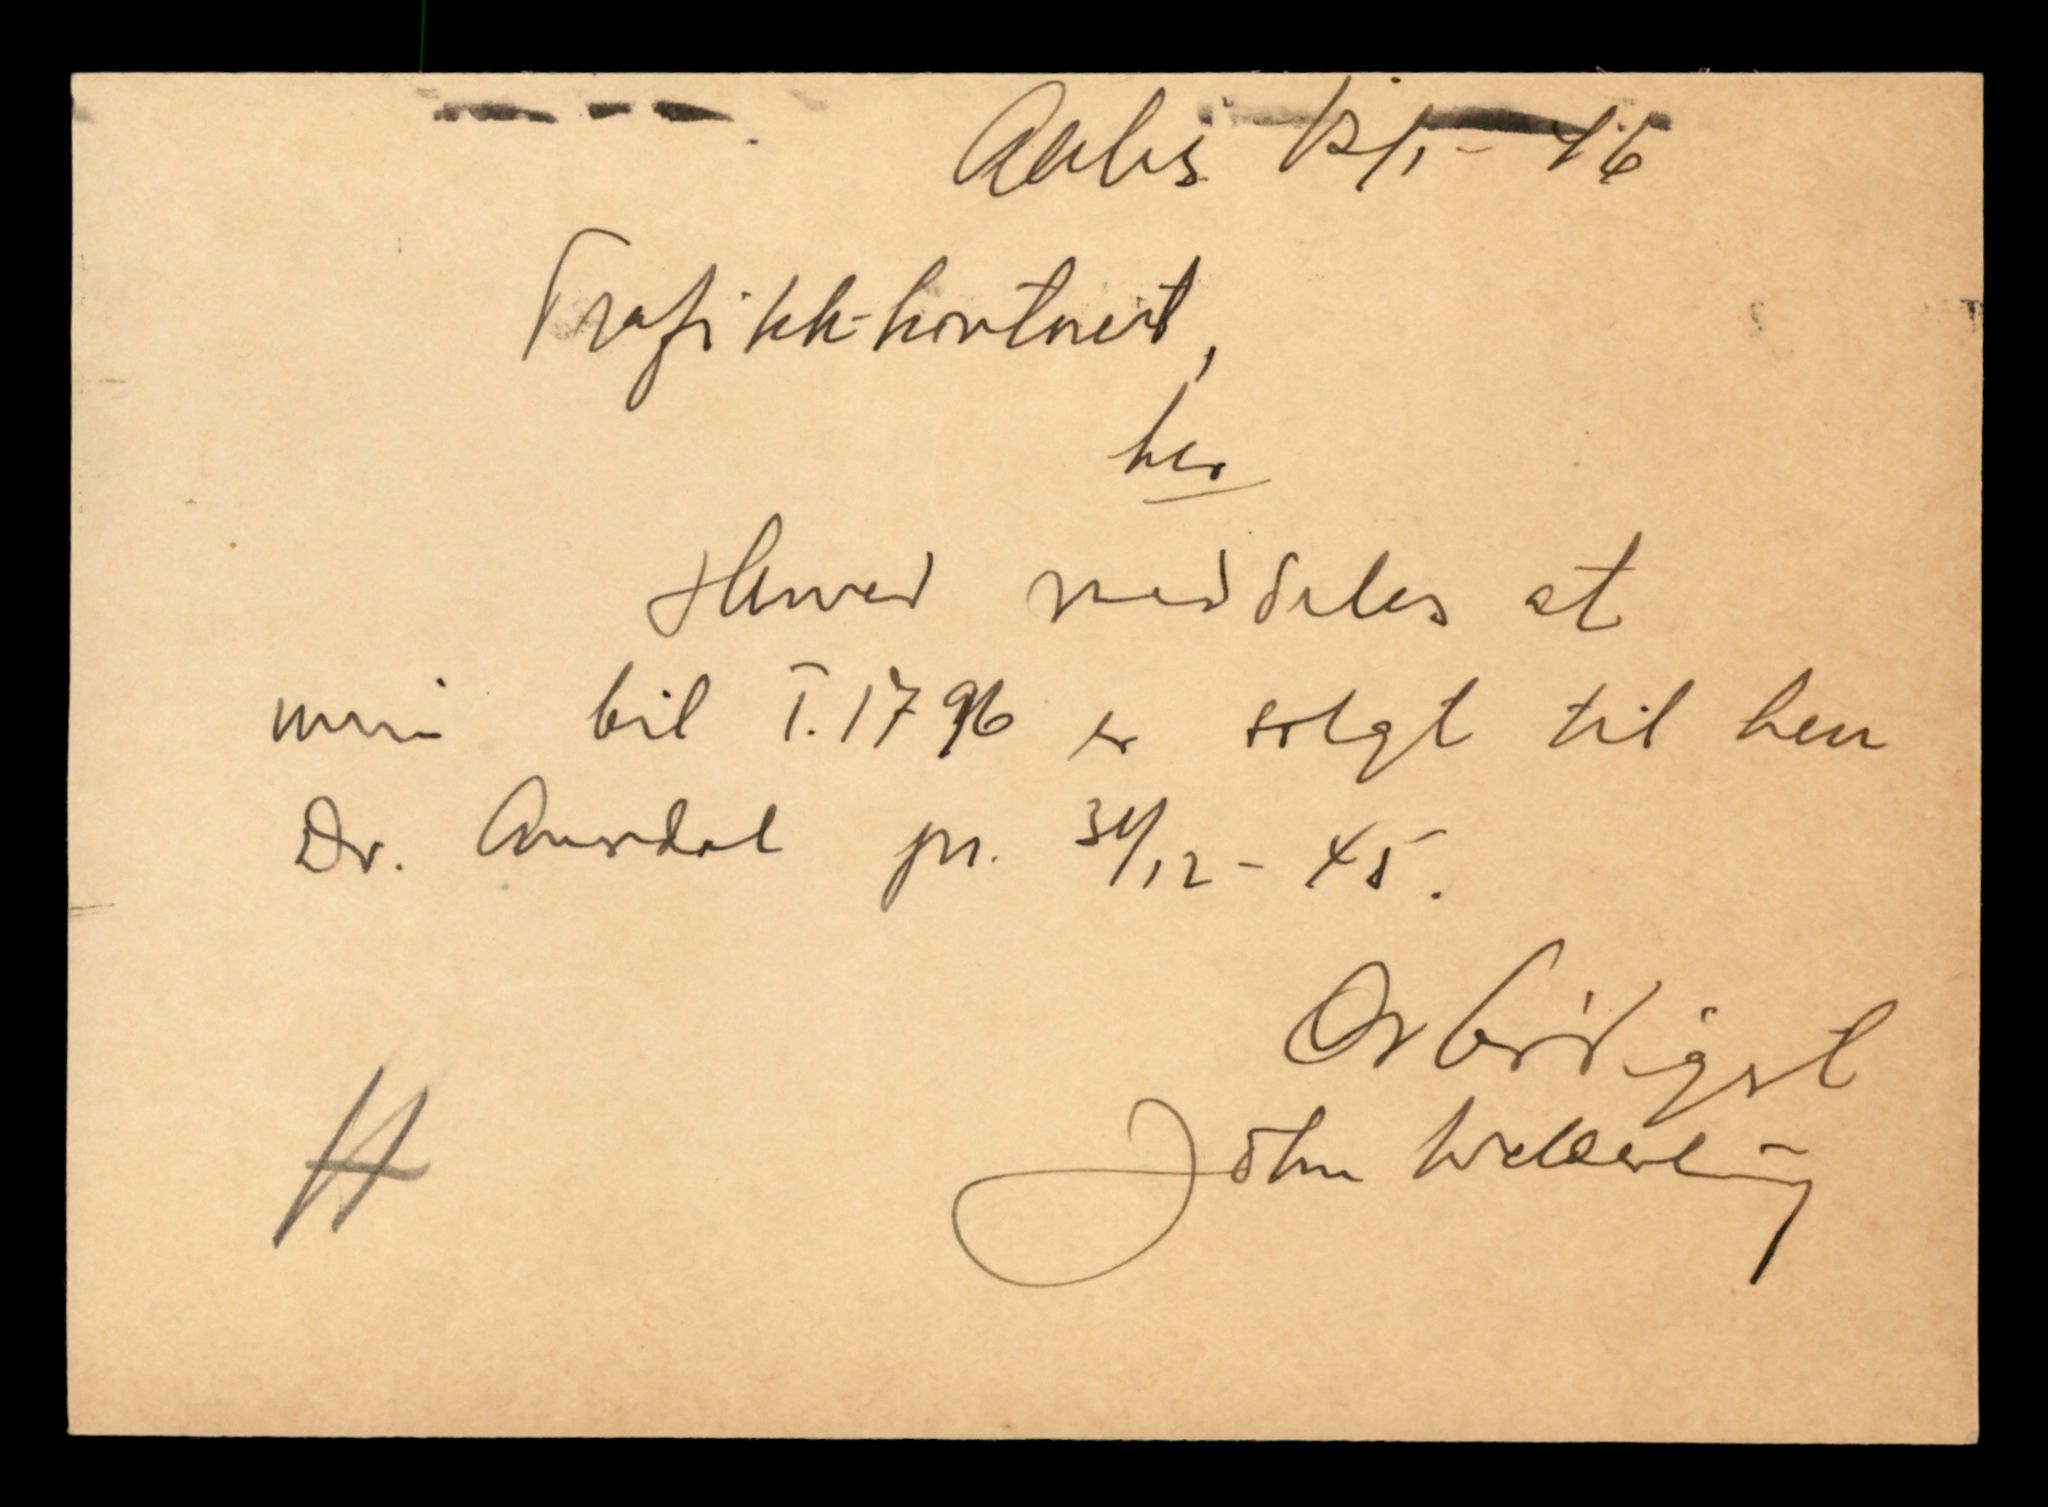 12/1 - 46
Trafikk-kontoret,
her
Herved meddeles at
min bil I.1796 er solgt til herr
Dr. pr. 31/12 - 45.
Ærbødigst
John
H